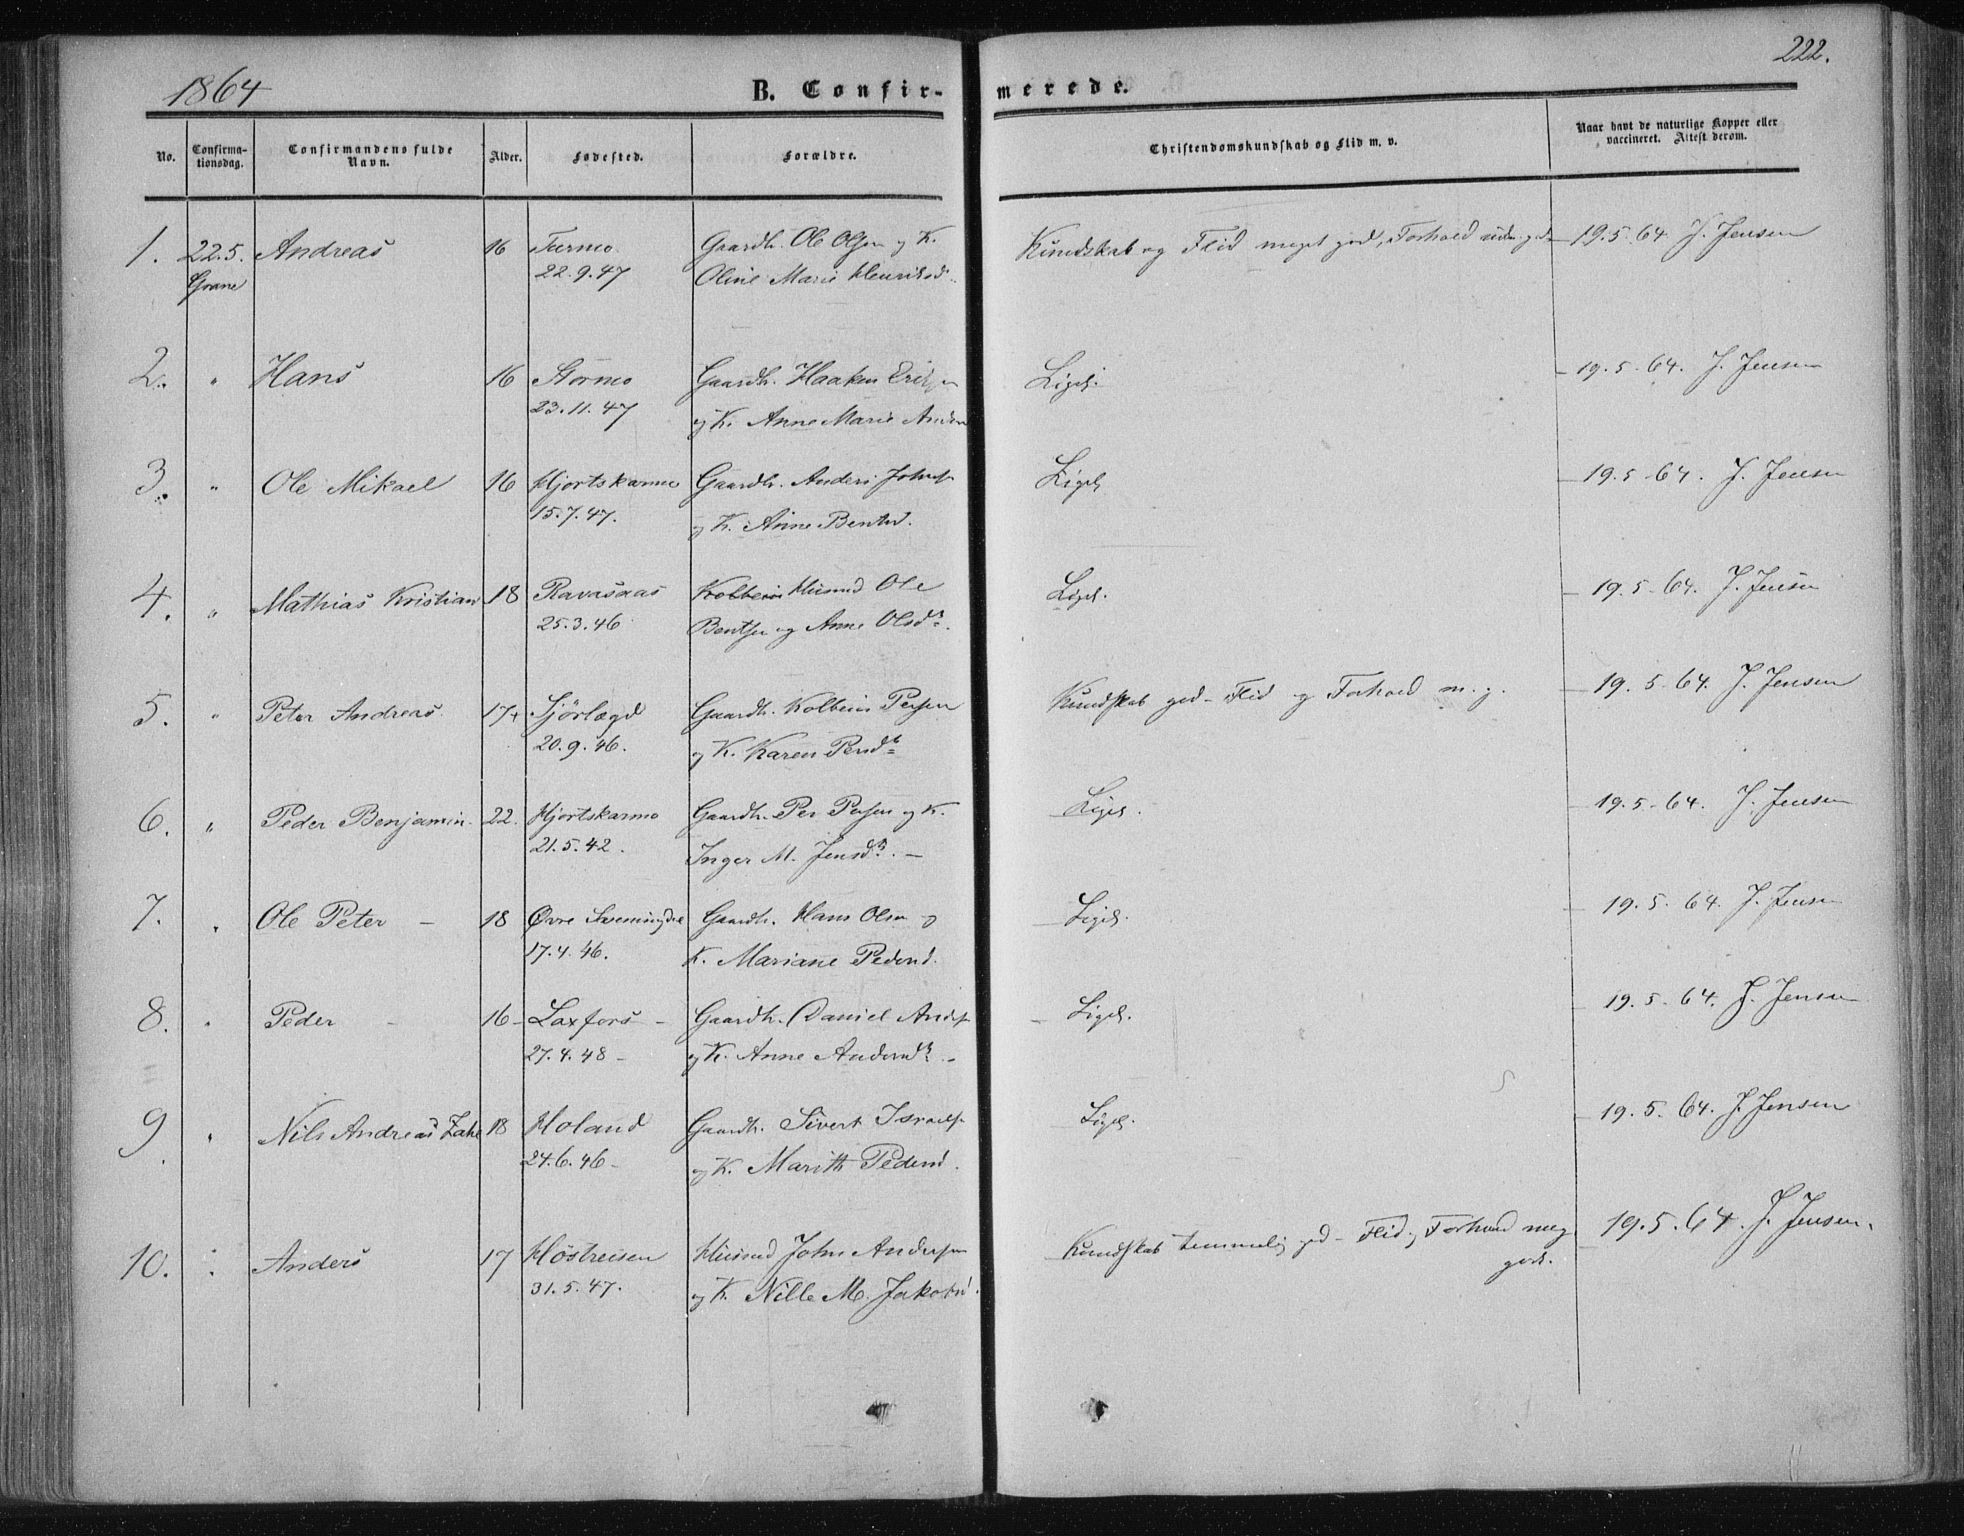 1864
B. Confir-
merede.
222.
No.
Confirma-
tionsdag.
Confirmandens fulde
Navn.
Alder.
Fødested.
Forældre.
Christendomskundskab og Flid m. v.
Naar havt de naturlige Kopper eller
vaccineret. Attest derom.
1. 22.5. Andreas 16 Turmo Gaardb. Ole Olsen og K. Kundskab og Flid meget god, Forhold 19.5.64 J. Jensen
Grane 22.9.47 Oline Marie Henriksd.
2. " Hans 16 Stormo Gaardb. Haaken Eriksen Ligel. 19.5.64. J. Jensen
23.11.47 og K. Anne Marie
3. " Ole Mikael 16 Hjortskarmo Gaardb. Anders Johns. Ligel. 19.5.64. J. Jensen
15.7.47. og K. Anne Bentsd.
4. " Mathias Kristian 18 Ravasaas Husmd Ole Ligel. 19.5.64. J. Jensen
25.3.46 Bentsen og Anne Olsdr.
5. " Peter Andreas 17 Sjörlægd Gaardb. Kolbein Persen Kundskab god - Flid og Forhold m. g. 19.5.64. J. Jensen
20.9.46. og K. Karen Persdr
6. " Peder Benjamin. 22. Hjortskarmo Gaardb. Per Persen og K. Ligel. 19.5.64. J. Jensen
21.5.42. Inger M. Jensdr. -
7. " Ole Peter - 18 Øvre Gaardb. Hans Olsen og Ligel. 19.5.64. J. Jensen
17.4.46. K. Mariane Pedersd.
8. " Peder - 16 - Laxfors - Gaardb. Daniel Anders. Ligel. 19.5.64. J. Jensen
27.4.48 - og K. Anne Andersdr. -
9. " Nils Andreas 18 Holand Gaardb. Sivert Israels. Ligel. 19.5.64. J. Jensen
24.6.46 - og K. Marith Pedersd.
10. " Anders 17 Höstreisen Husmd John Andersen Kundskab temmelig god - Flid og Forhold meg 19.5.64. J. Jensen.
31.5.47. og K. Nille M. Jakobsd. godt.